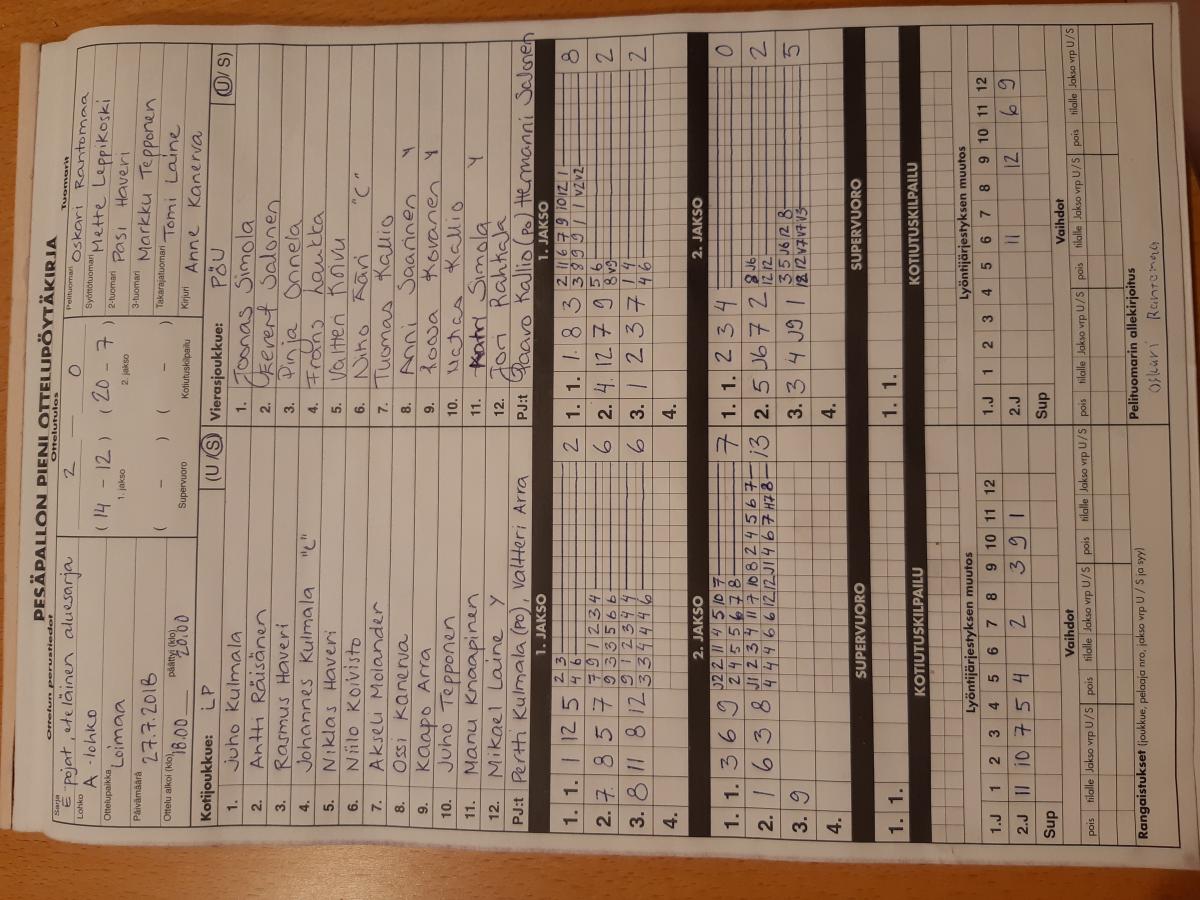 PESÄPALLON PIENI OTTELUPÖYTÄKIRJA
Ottelun perustiedot
Ottelutulos
Tuomarit
Sarja
E-pojat, eteläinen aluesarja
Lohko
A-lohko
Ottelupaikka
Loimaa
Päivämäärä
27.7.2018
Ottelu alkoi (klo) päättyi (klo)
18.00 20.00
2 - 0
(14 - 12) (20 - 7)
1. jakso 2. jakso
( - ) ( - )
Supervuoro Kotiutuskilpailu
Pelituomari Oskari Rantomaa
Syöttötuomari Mette Leppikoski
2-tuomari Pasi Haveri
3-tuomari Markku Tepponen
Takarajatuomari Tomi Laine
Kirjuri Anne Kanerva
Kotijoukkue: LP (U/S)
1. Juho Kulmala
2. Antti Räisänen
3. Rasmus Haveri
4. Johannes Kulmala "C"
5. Niklas Haveri
6. Niilo Koivisto
7. Akseli Molander
8. Ossi Kanerva
9. Kaapo Arra
10. Juho Tepponen
11. Manu Knaapinen
12. Mikael Laine Y
PJ:t Pertti Kulmala (PO), Valtteri Arra
Vierasjoukkue: PöU (U/S)
1. Joonas Simola
2. Eevert Salonen
3. Pinja Onnela
4. Frans Laukka
5. Valtteri Koivu
6. Niho "C"
7. Tuomas Kallio
8. Anni Saarinen Y
9. Roosa Kovanen Y
10. Matias Kallio
11. Katri Simola Y
12. Jori Rahtaja
PJ:t Paavo Kallio (PO) Hermanni Salonen
1. JAKSO
1. 1. 1 12 5 2 3 2
4 6
2. 7 8 5 7 7 9 1 2 3 4 6
9 3 3 5 6 6
3. 8 11 8 12 9 1 2 3 4 4 6
3 3 4 4 4 6
4.
1. JAKSO
1. 1. 1 8 3 2 11 6 7 9 10 12 1 8
3 8 9 9 1 1 V2 V2
2. 4 12 7 9 5 6 2
8 V9
3. 1 2 3 7 1 4 2
4 6
4.
2. JAKSO
1. 1. 3 6 9 J2 2 11 4 5 10 7 7
2 4 5 5 6 7 8
2. 1 6 3 8 J1 2 3 4 11 7 10 8 2 4 5 6 7 13
3. 9
4.
2. JAKSO
1. 1. 2 3 4 0
2. 5 J6 7 2 8 J6 2
12 12
3. 3 4 J9 1 3 5 J6 12 8 5
4.
SUPERVUORO
1. 1.
KOTIUTUSKILPAILU
SUPERVUORO
1. 1.
KOTIUTUSKILPAILU
Lyöntijärjestyksen muutos
1.J 1 2 3 4 5 6 7 8 9 10 11 12
2.J 11 10 7 5 4 2 3 9 1
Sup
Vaihdot
pois tilalle Jakso vrp U / S pois tilalle Jakso vrp U / S pois tilalle Jakso vrp U / S
Lyöntijärjestyksen muutos
1.J 1 2 3 4 5 6 7 8 9 10 11 12
2.J 11 12 6 9
Sup
Vaihdot
pois tilalle Jakso vrp U / S pois tilalle Jakso vrp U / S pois tilalle Jakso vrp U / S
Rangaistukset (joukkue, pelaaja nro, jakso vrp U / S ja syy)
Pelituomarin allekirjoitus
Oskari Rantomaa